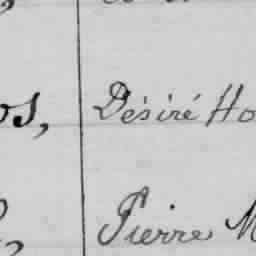 os, Désiré Ho
Pierre M